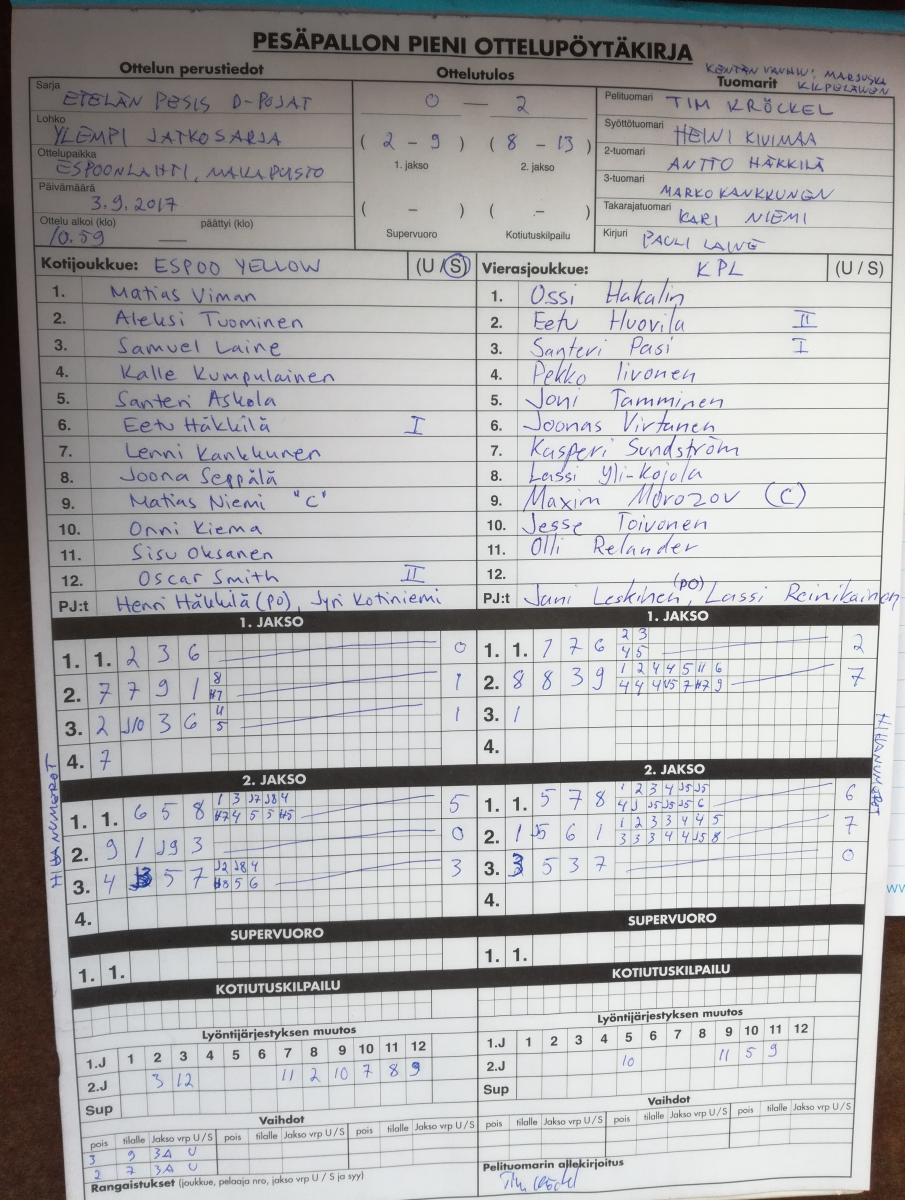 PESÄPALLON PIENI OTTELUPÖYTÄKIRJA
Ottelun perustiedot
Sarja ETELÄN PESIS D-POJAT
Lohko YLEMPI JATKOSARJA
Ottelupaikka ESPOONLAHTI,
Päivämäärä 3.9.2017
Ottelu alkoi (klo) päättyi (klo)
10.59 —
Ottelutulos
0 — 2
( 2 - 9 ) ( 8 - 13 )
1. jakso 2. jakso
( - ) ( - )
Supervuoro Kotiutuskilpailu
KENTÄN VANHIN: MARJUSKA KILPELÄINEN
Tuomarit
Pelituomari TIM KRÖCKEL
Syöttötuomari HEINI KIVIMAA
2-tuomari ANTTO HÄKKILÄ
3-tuomari MARKO KANKKUNEN
Takarajatuomari KARI NIEMI
Kirjuri PAULI LAINE
Kotijoukkue: ESPOO YELLOW (U / S)
1. Matias Viman
2. Aleksi Tuominen
3. Samuel Laine
4. Kalle Kumpulainen
5. Santeri Askola
6. Eetu Häkkilä I
7. Lenni Kankkunen
8. Joona Seppälä
9. Matias Niemi "C"
10. Onni Kiema
11. Sisu Oksanen
12. Oscar Smith II
PJ:t Henri Häkkilä (PO), Jyri Kotiniemi
Vierasjoukkue: KPL (U / S)
1. Ossi Hakalin
2. Eetu Huovila II
3. Santeri Pasi I
4. Pekko Iivonen
5. Joni Tamminen
6. Joonas Virtanen
7. Kasperi Sundström
8. Lassi Yli-Kojola
9. Maxim Morozov (C)
10. Jesse Toivonen
11. Olli Relander
12.
PJ:t Jani Leskinen (PO), Lassi Reinikainen
1. JAKSO
1. 1. 2 3 6 0
2. 7 7 9 1 8 1
3. 2 J10 3 6 4 5 1
4. 7
1. JAKSO
1. 1. 7 7 6 2 3 4 5 2
2. 8 8 3 9 1 2 4 4 5 11 6 7
3. 1
4.
HIHANUMEROT
HIHANUMEROT
2. JAKSO
1. 1. 6 5 8 5
2. 9 1 J9 3 0
3. 4 5 7 3
4.
2. JAKSO
1. 1. 5 7 8 6
2. 1 J5 6 1 1 2 3 3 4 4 5 7
3 3 3 4 4 J5 8
3. 3 5 3 7 0
4.
SUPERVUORO
1. 1.
SUPERVUORO
1. 1.
KOTIUTUSKILPAILU
KOTIUTUSKILPAILU
Lyöntijärjestyksen muutos
1.J 1 2 3 4 5 6 7 8 9 10 11 12
2.J 3 12 11 2 10 7 8 9
Sup
Lyöntijärjestyksen muutos
1.J 1 2 3 4 5 6 7 8 9 10 11 12
2.J 10 11 5 9
Sup
Vaihdot
pois tilalle Jakso vrp U / S pois tilalle Jakso vrp U / S pois tilalle Jakso vrp U / S
3 9 3A U
2 7 3A U
Vaihdot
pois tilalle Jakso vrp U / S pois tilalle Jakso vrp U / S pois tilalle Jakso vrp U / S
Rangaistukset (joukkue, pelaaja nro, jakso vrp U / S ja syy)
Pelituomarin allekirjoitus